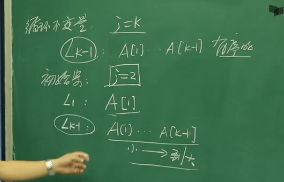 循环不变量: j=k
L_{k-1}: A[1] . A[k-1] 有序
初始: j=2
L_1: A[1]
L_{k-1}: A(1) ... A[k-1]
小 → 大